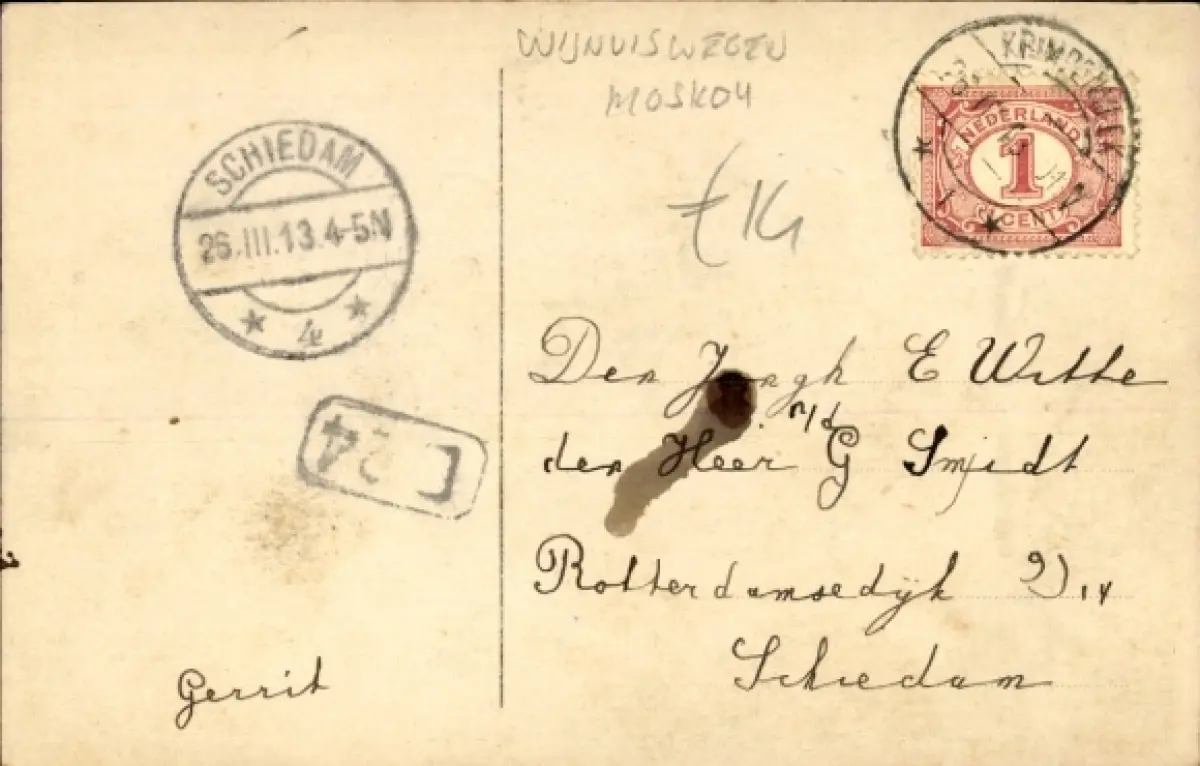 WIJNUISWEGEN
MOSKOU
SCHIEDAM
26.III.13.4-5N
4
NEDERLAND
1
CENT
Den Jongh E Witte
n/d
den Heer G Smidt
Rotterdamsedijk
Schiedam
Gerrit